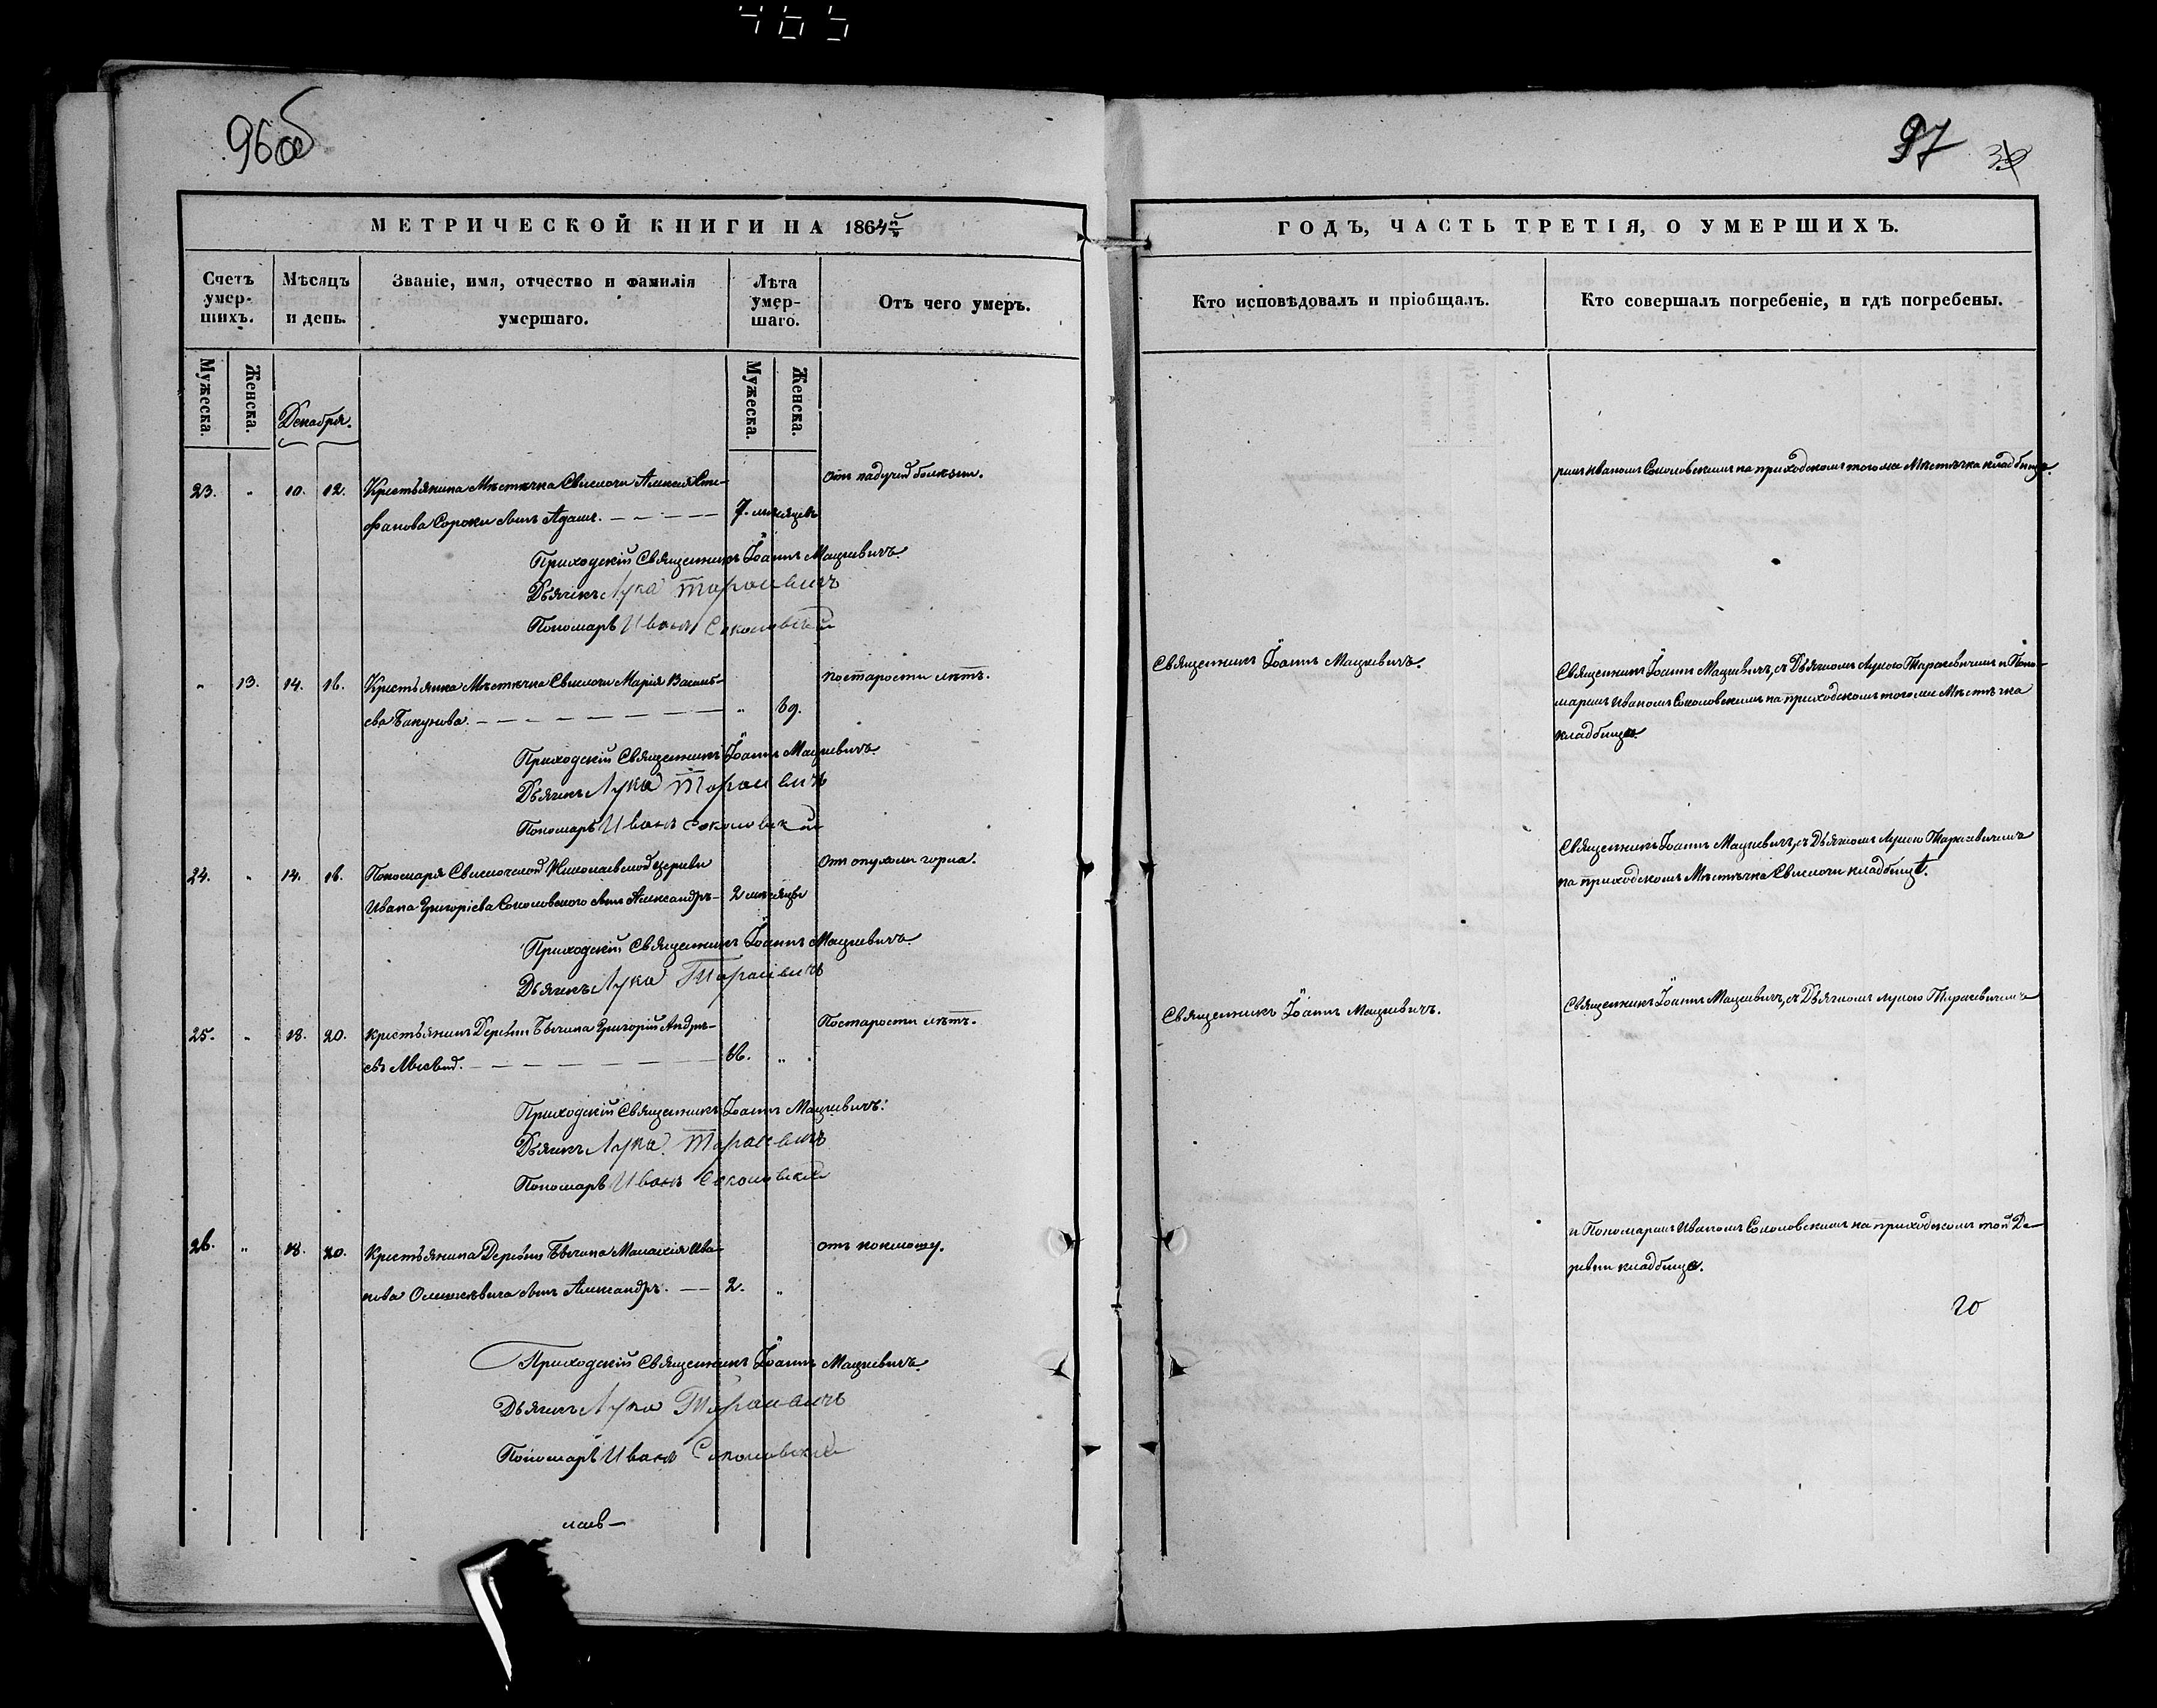 465
96об
97
МЕТРИЧЕСКОЙ КНИГИ НА 1864й
ГОДЪ, ЧАСТЬ ТРЕТІЯ, О УМЕРШИХЪ.
Счетъ умер-шихъ.
Мѣсяцъ и день.
Званіе, имя, отчество и фамилія умершаго.
Лѣта умер-шаго.
Отъ чего умеръ.
Кто исповѣдовалъ и пріобщалъ.
Кто совершалъ погребеніе, и гдѣ погребены.
Мужеска.
Женска.
Мужеска.
Женска.
Декабря.
23. " 10. 12. Крестьянина Мѣстечка Свислочи Алексія Сте-
фанова Сороки сынъ Адамъ. 7. мѣсяцевъ
отъ падучей болѣзни.
ремъ Иваномъ Соколовскимъ на приходскомъ того же Мѣстечка кладбище.
Приходскій Священникъ Іоаннъ Мацкевичъ.
Дьячекъ Лука Тарасевичъ
Пономарь Иванъ Соколовскій
" 13. 14. 16. Крестьянка Мѣстечка Свислочи Марія Василь-
ева Бакунова. " 69.
по старости лѣтъ.
Священникъ Іоаннъ Мацкевичъ.
Священникъ Іоаннъ Мацкевичъ, съ Дьячкомъ Лукою Тарасевичемъ и Поно-
маремъ Иваномъ Соколовскимъ на приходскомъ того же Мѣстечка
кладбище.
Приходскій Священникъ Іоаннъ Мацкевичъ.
Дьячекъ Лука Тарасевичъ
Пономарь Иванъ Соколовскій
24. " 14. 16. Пономаря Свислочской Николаевской церкви
Ивана Григоріева Соколовского сынъ Александръ 2 мѣсяцы
Отъ опухоли горла.
Священникъ Іоаннъ Мацкевичъ, съ Дьячкомъ Лукою Тарасевичемъ
на приходскомъ Мѣстечка Свислочи кладбищѣ.
Приходскій Священникъ Іоаннъ Мацкевичъ.
Дьячекъ Лука Тарасевичъ
25. " 18. 20. Крестьянинъ Деревни Бычина Григорій Андре-
евъ 66. "
По старости лѣтъ.
Священникъ Іоаннъ Мацкевичъ.
Священникъ Іоаннъ Мацкевичъ, съ Дьячкомъ Лукою Тарасевичемъ
Приходскій Священникъ Іоаннъ Мацкевичъ.
Дьячекъ Лука Тарасевичъ
Пономарь Иванъ Соколовскій
26. " 18. 20. Крестьянина Деревни Бычина Малахія Ива-
нова сынъ Александръ. 2. "
отъ коклюшу.
и Пономаремъ Иваномъ Соколовскимъ на приходскомъ той Де-
ревни кладбище.
Приходскій Священникъ Іоаннъ Мацкевичъ.
Дьячекъ Лука Тарасевичъ
Пономарь Иванъ Соколовскій